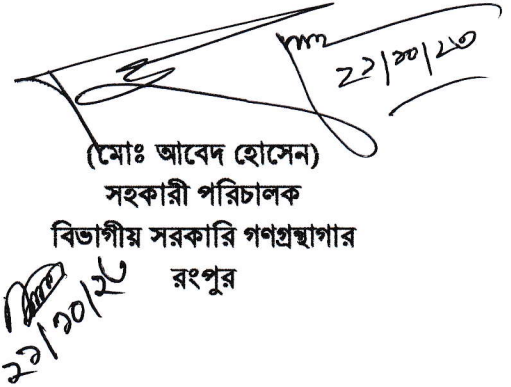 ২২/১০/২৩
(মোঃ আবেদ হোসেন)
সহকারী পরিচালক
বিভাগীয় সরকারি গণগ্রন্থাগার
রংপুর
২২/১০/২৩